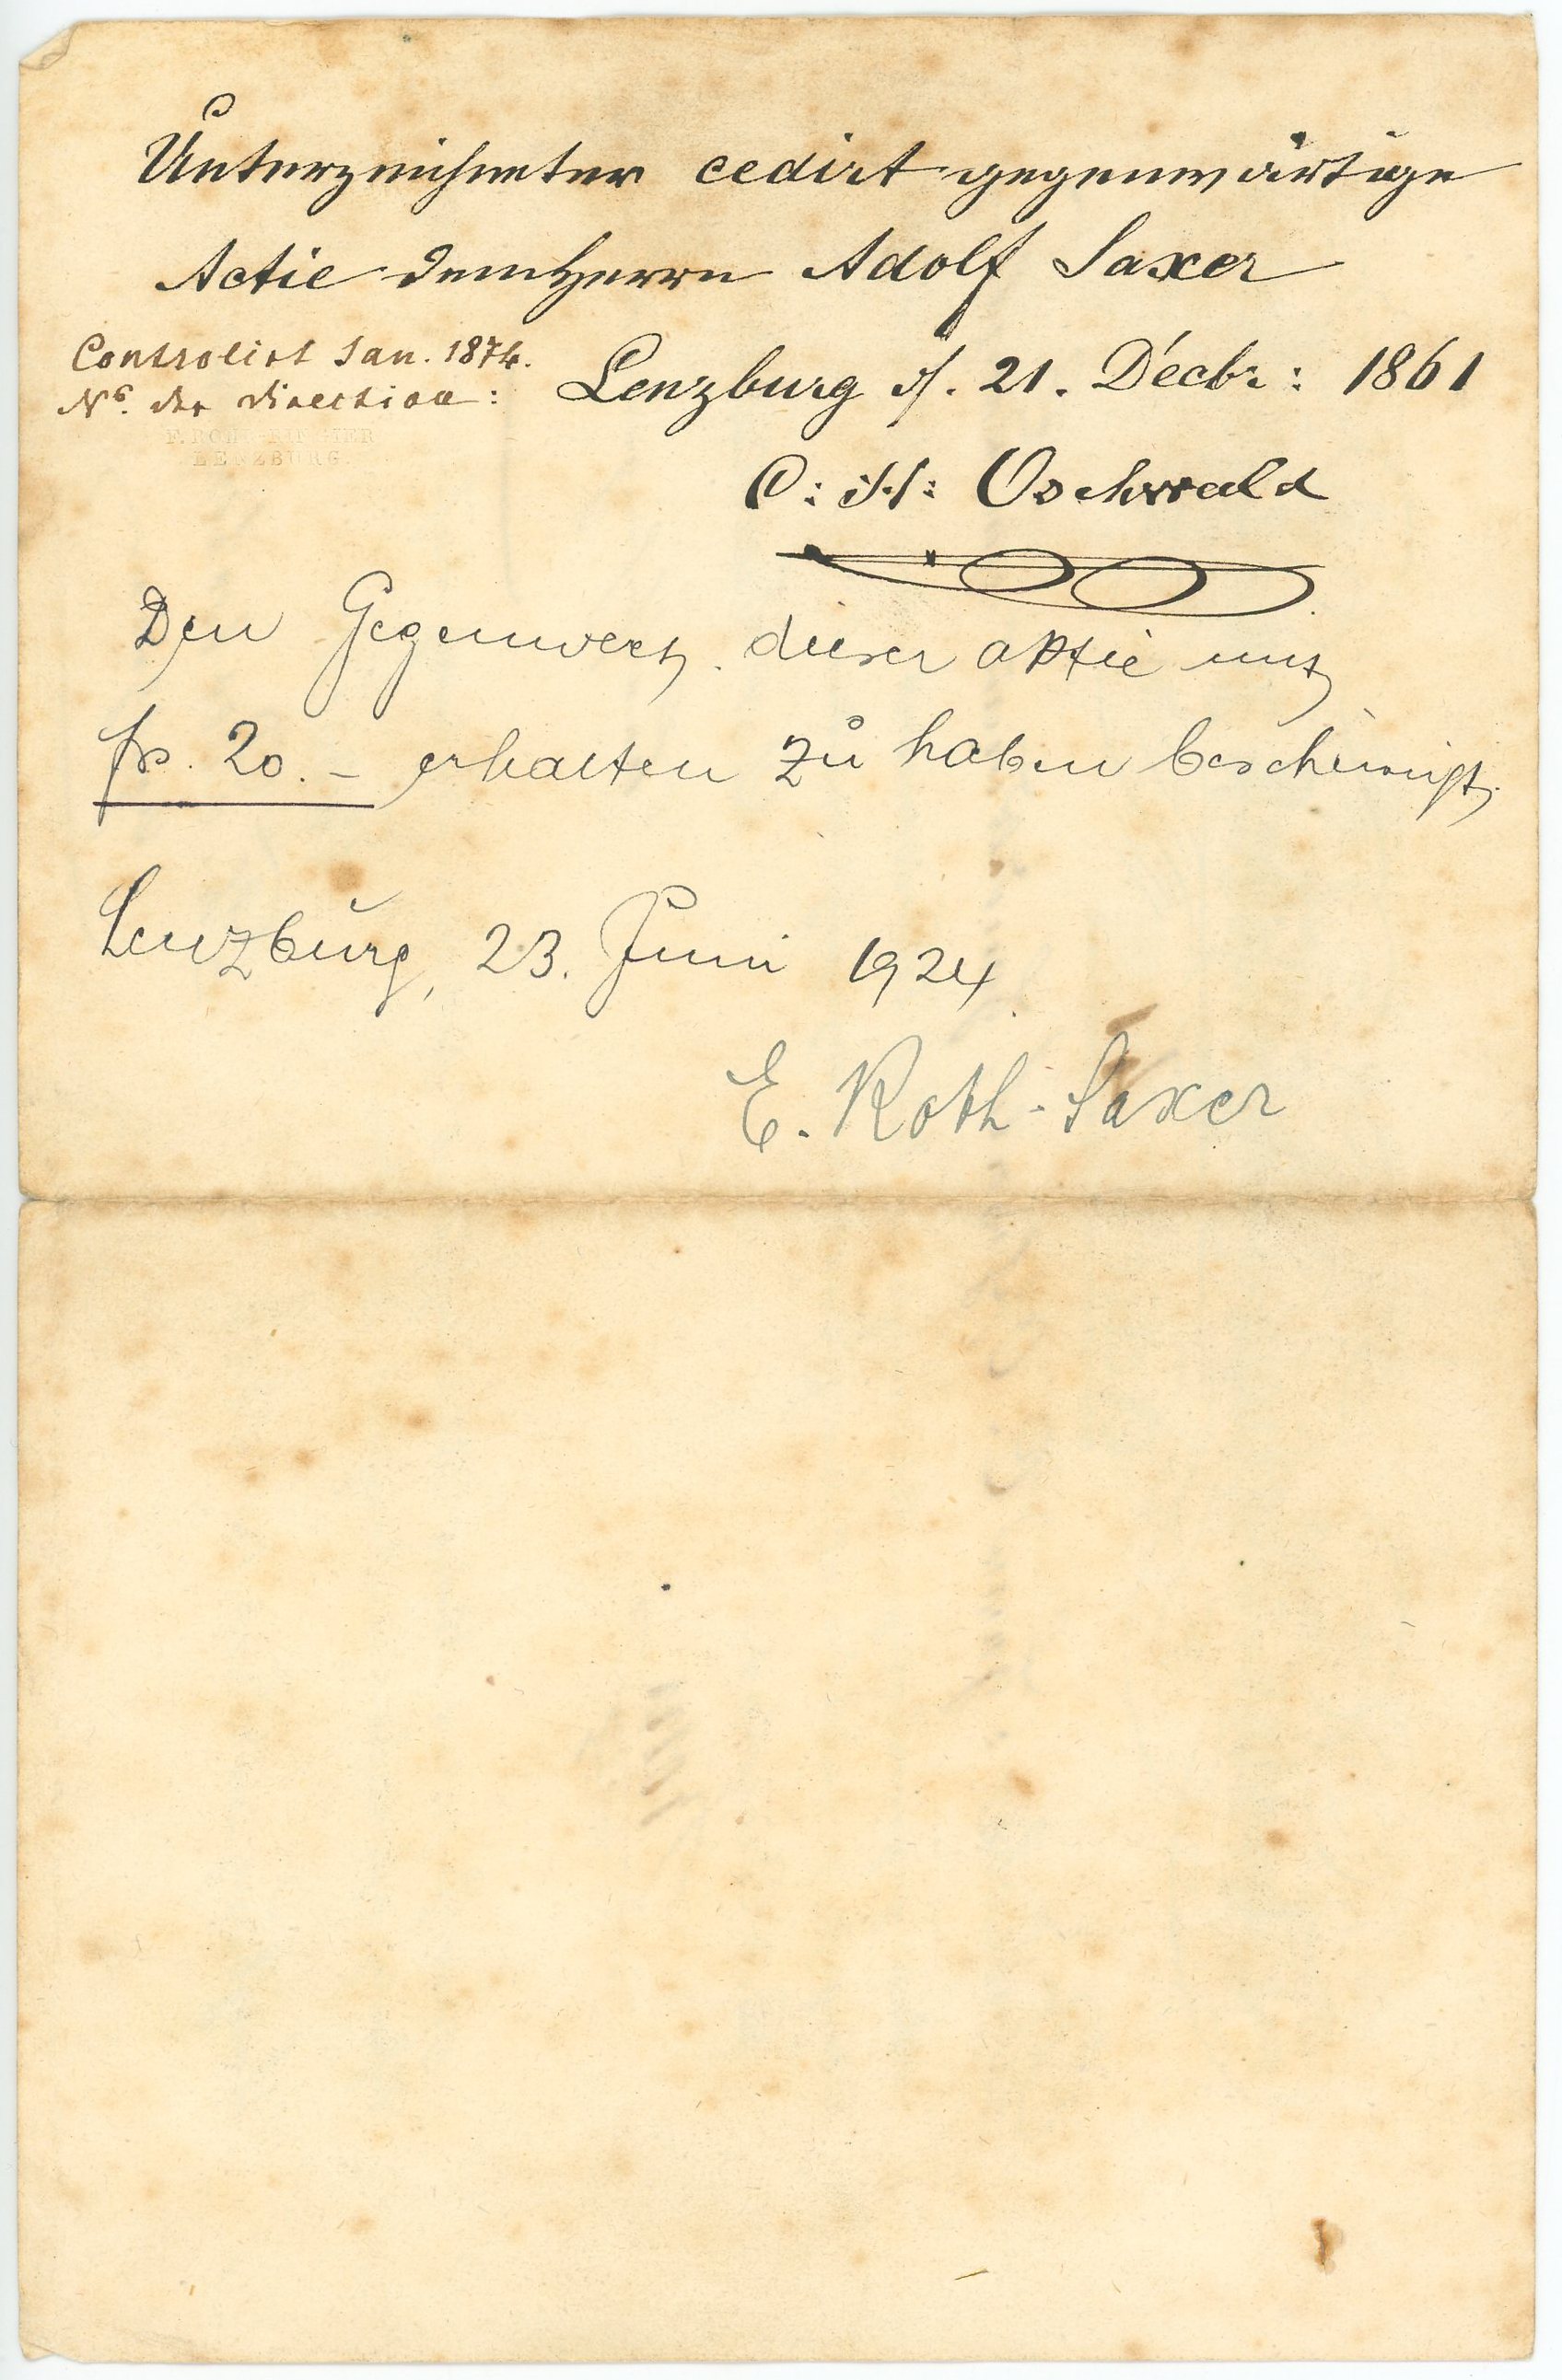 Unterzeichneter cedirt gegenwärtige
Actie dem Herrn Adolf Saxer
Controlirt Jan. 1874.
Ns. der Direction:
F. ROHR-RINGIER
LENZBURG
Lenzburg d. 21. Decbr: 1861
C: H: Oschwald
Den Gegenwert dieser Aktie mit
frs. 20.– erhalten zu haben bescheinigt,
Lenzburg, 23. Juni 1924
E. Roth-Saxer